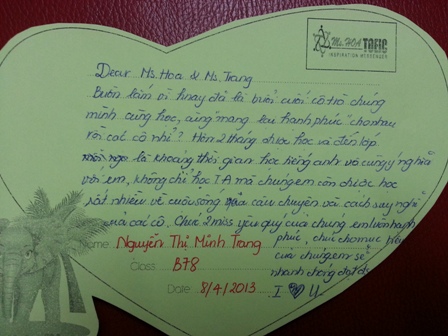 Ms. HOA TOEIC
INSPIRATION MESSENGER
Dear Ms. Hoa & Ms. Trang
Buồn lắm vì hnay đã là buổi cuối cô trò chúng
mình cùng học, cùng mang lại hạnh phúc cho nhau
rồi các cô nhỉ? Hơn 2 tháng được học và đến lớp
mỗi ngày là khoảng thời gian học tiếng anh vô cùng ý nghĩa
với em, không chỉ học T.A mà chúng em còn được học
rất nhiều về cuộc sống qua câu chuyện và cách suy nghĩ
của các cô. Chúc 2 miss yêu quý của chúng em luôn hạnh
phúc, chúc cho mục tiêu
của chúng em sẽ
nhanh chóng đạt được
I ♥ U
Name Nguyễn Thị Minh Trang
Class B78
Date 8/4/2013